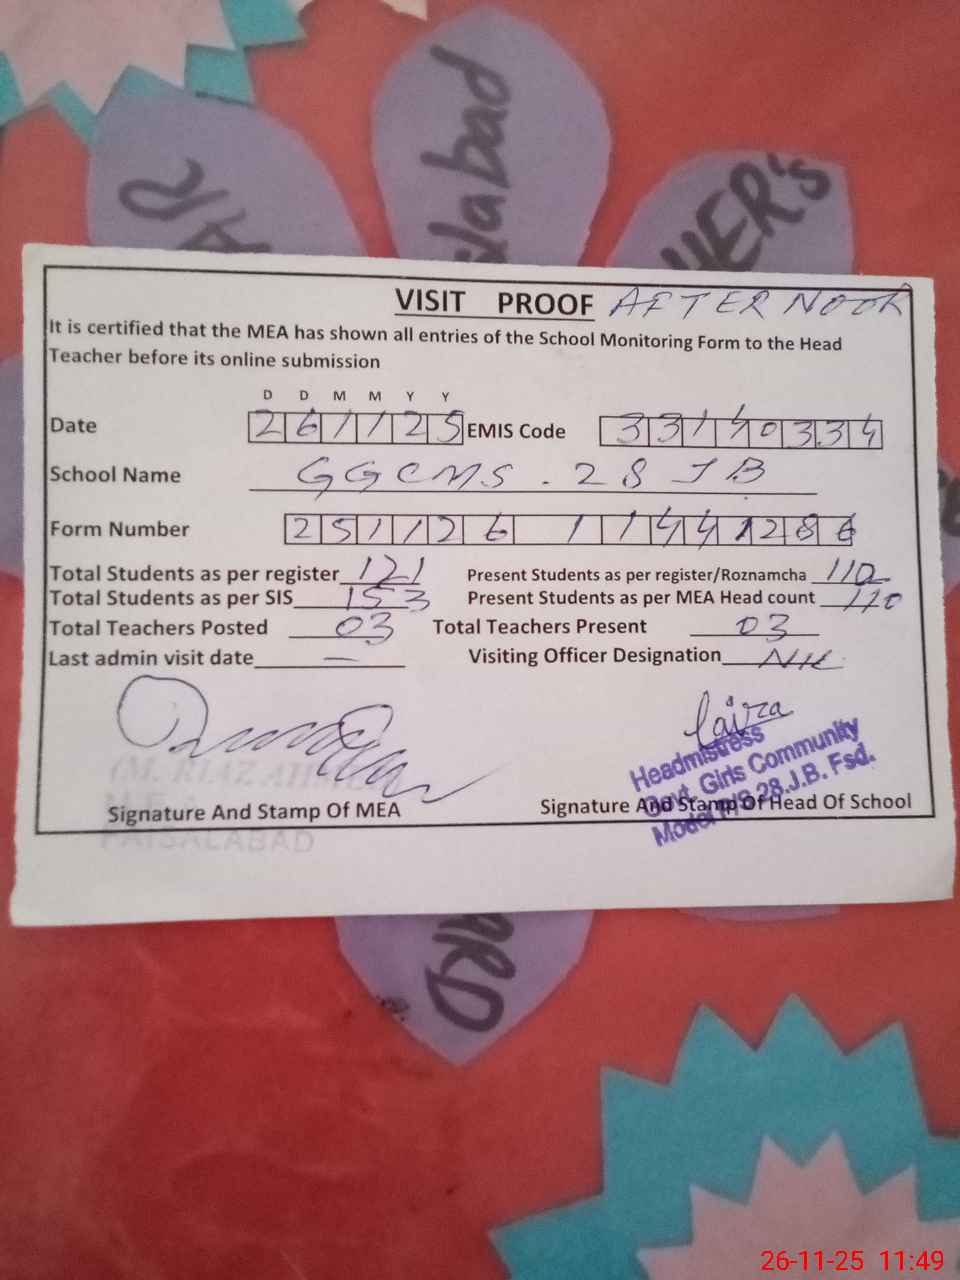 slabad
HER's
VISIT PROOF AFTER NOON
It is certified that the MEA has shown all entries of the School Monitoring Form to the Head
Teacher before its online submission
D D M M Y Y
Date 261125 EMIS Code 33140334
School Name GGCMS . 28 JB
Form Number 251126 11441286
Total Students as per register 121 Present Students as per register/Roznamcha 110
Total Students as per SIS 153 Present Students as per MEA Head count 110
Total Teachers Posted 03 Total Teachers Present 03
Last admin visit date — Visiting Officer Designation Nil
(M. RIAZ AHMED
Headmistress
Govt. Girls Community
Model 28.J.B. Fsd.
Signature And Stamp Of MEA Signature And Stamp Of Head Of School
FAISALABAD
ARD
26-11-25 11:49